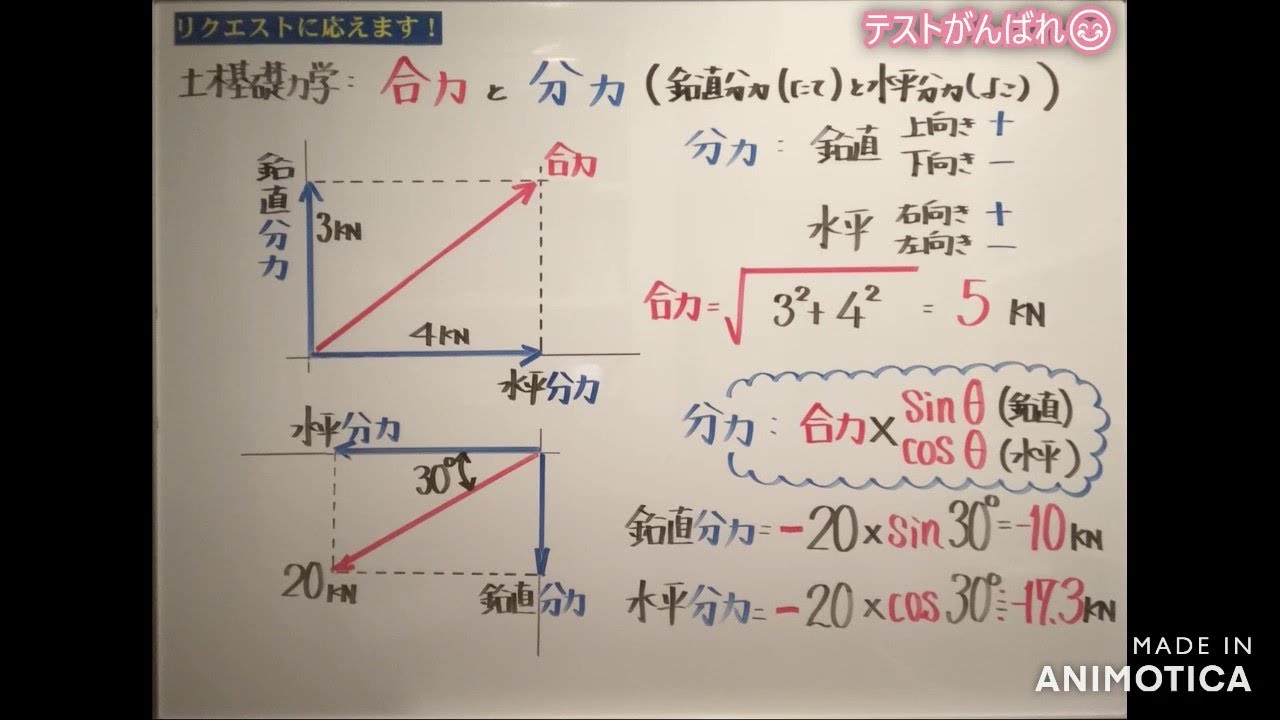 リクエストに応えます!
テストがんばれ😊
土木基礎力学: 合力と分力(鉛直分力(たて)と水平分力(よこ))
鉛直分力
3KN
合力
4KN
水平分力
分力: 鉛直 上向き +
下向き −
水平 右向き +
左向き −
合力=√3²+4² = 5 KN
分力: 合力×sinθ(鉛直)
cosθ(水平)
水平分力
30°
20KN
鉛直分力
鉛直分力=−20×sin30°=−10KN
水平分力=−20×cos30°≒−17.3KN
MADE IN
ANIMOTICA